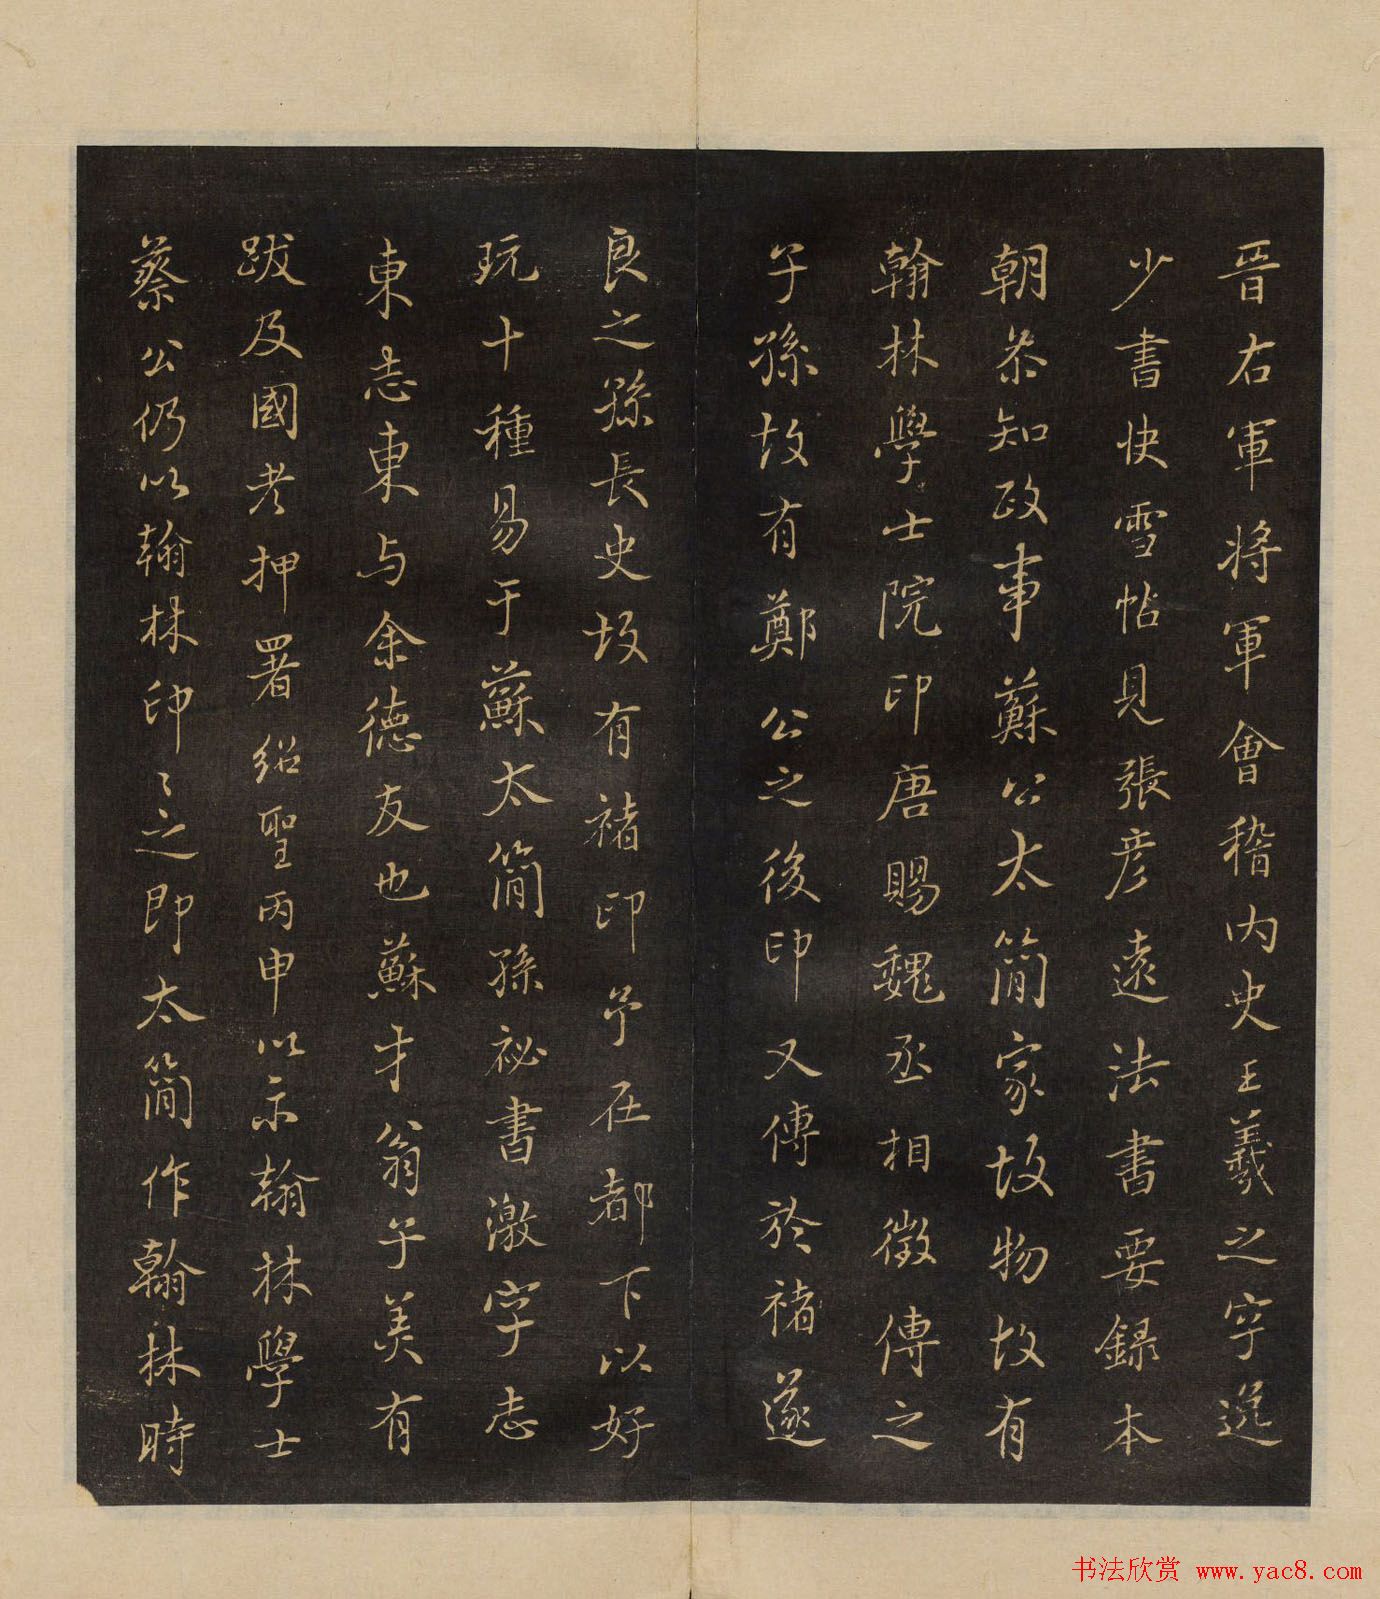 晉右軍將軍會稽內史王羲之字逸
少書快雪帖見張彥遠法書要錄本
朝參知政事蘇公太簡家故物故有
翰林學士院印唐賜魏丞相徵傳之
子孫故有鄭公之後印又傳於褚遂
良之孫長史故有褚印予在都下以好
玩十種易于蘇太簡孫祕書激字志
東志東与余德友也蘇才翁子美有
跋及國老押署紹聖丙申以示翰林學士
蔡公仍以翰林印印之即太簡作翰林時
书法欣赏 www.yac8.com